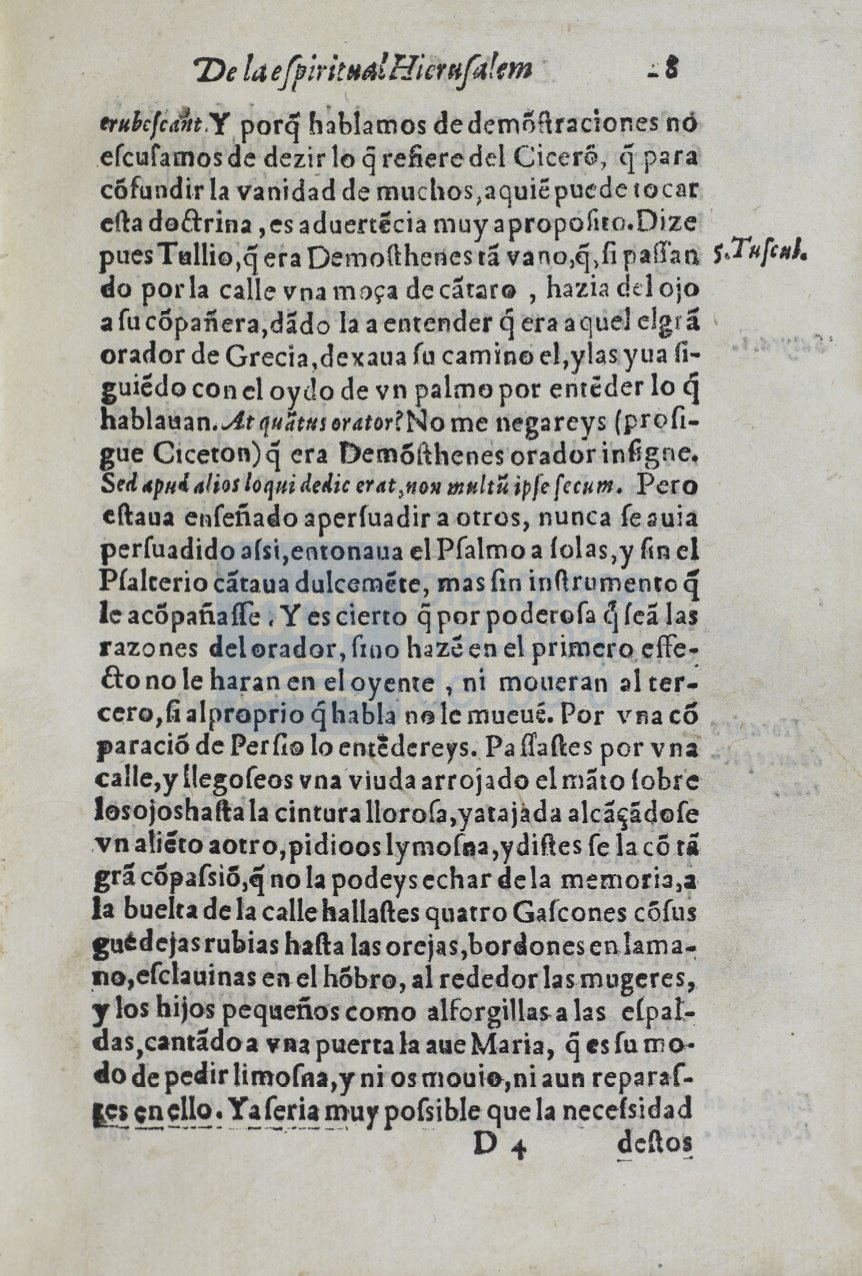 De la eſpiritual Hieruſalem 28
erubeſcant. Y porq̃ hablamos de demõſtraciones no
eſcuſamos de dezir lo q̃ refiere del Cicerõ, q̃ para
cõfundir la vanidad de muchos, aquiẽ puede tocar
eſta doctrina, es aduertẽcia muy a propoſito. Dize
pues Tullio, q̃ era Demoſthenes tã vano, q̃, ſi paſſan
5. Tuſcul.
do por la calle vna moça de cãtaro, hazia del ojo
a ſu cõpañera, dãdo la a entender q̃ era aquel el grã
orador de Grecia, dexaua ſu camino el, y las yua ſi-
guiẽdo con el oydo de vn palmo por entẽder lo q̃
hablauan. At quãtus orator? No me negareys (proſi-
gue Ciceron) q̃ era Demõſthenes orador inſigne.
Sed apud alios loqui dedic erat, non multũ ipſe ſecum. Pero
eſtaua enſeñado aperſuadir a otros, nunca ſe auia
perſuadido aſsi, entonaua el Pſalmo a ſolas, y ſin el
Pſalterio cãtaua dulcemẽte, mas ſin inſtrumento q̃
le acõpañaſſe. Y es cierto q̃ por poderoſa q̃ ſeã las
razones del orador, ſino hazẽ en el primero effe-
cto no le haran en el oyente, ni moueran al ter-
cero, ſi al proprio q̃ habla no le mueuẽ. Por vna cõ
paraciõ de Perſio lo entẽdereys. Paſſaſtes por vna
calle, y llegoſeos vna viuda arrojado el mãto ſobre
los ojos haſta la cintura lloroſa, y atajada alcãçãdoſe
vn aliẽto a otro, pidioos lymoſna, y diſtes ſe la cõ tã
grã cõpaſsiõ, q̃ no la podeys echar de la memoria, a
la buelta de la calle hallaſtes quatro Gaſcones cõ ſus
guẽdejas rubias haſta las orejas, bordones en la ma-
no, eſclauinas en el hõbro, al rededor las mugeres,
y los hijos pequeños como alforgillas a las eſpal-
das, cantãdo a vna puerta la aue Maria, q̃ es ſu mo-
do de pedir limoſna, y ni os mouio, ni aun reparaſ-
tes en ello. Ya ſeria muy poſsible que la neceſsidad
D 4 deſtos